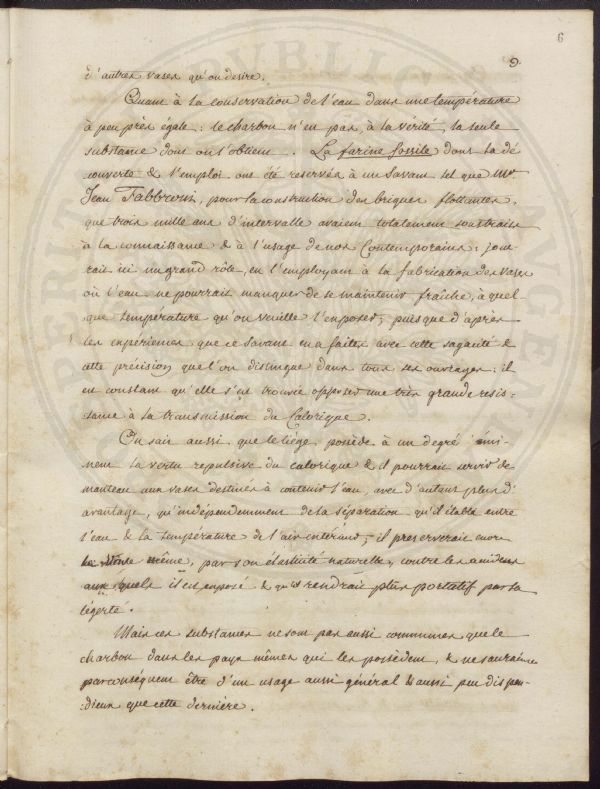 6
9.
d'autres vases qu'on desire.
Quant à la conservation de l'eau dans une température
à peu près égale: le charbon n'en pas, à la vérité, la seule
substance dont on l'obtient. La farine fossile dont la dé
couverte & l'emploi ont été reservés à un Savant tel que Mr
Jean Fabbroni, pour la construction des briques flottantes,
que trois mille ans d'intervalle avaient totalement soustraits
à la connaissance & à l'usage de nos Contemporains: joue
rait ici un grand rôle, en l'employant à la fabrication des vases
où l'eau ne pourrait manquer de se maintenir fraîche, à quel-
que température qu'on veuille l'exposer; puisque d'après
les expériences que ce savant en a faites avec cette sagacité &
cette précision que l'on distingue dans tous ses ouvrages: il
est constant qu'elle s'est trouvée opposer une très grande resis-
tance à la transmission du Calorique.
On sait aussi que le liége, possède à un degré émi-
nent la vertu repulsive du calorique & il pourrait servir de
manteau aux vases destinés à contenir l'eau, avec d'autant plus d'
avantage, qu'indépendemment de la séparation qu'il établit entre
l'eau & la température de l'air extérieur; il preserverait encore
même, par son élasticité naturelle, contre les accidens
aux quels il est exposé & qu'il rendrait plus portatif par sa
légerté.
Mais ces substances ne sont pas aussi communes que le
charbon dans les pays mêmes qui les possèdent, & ne sauraient
par conséquent être d'un usage aussi général & aussi peu dispen-
dieux que cette dernière.